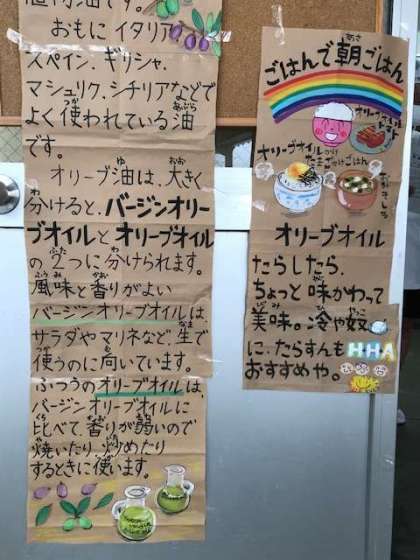 植物油です。
おもにイタリア
スペイン、ギリシャ、
マシュリク、シチリアなどで
よく使われている油
です。
オリーブ油は、大きく
分けると、バージンオリー
ブオイルとオリーブオイル
の2つに分けられます。
風味と香りがよい
バージンオリーブオイルは、
サラダやマリネなど、生で
使うのに向いています。
ふつうのオリーブオイルは、
バージンオリーブオイルに
比べて、香りが弱いので
焼いたり、炒めたり
するときに使います。
ごはんで朝ごはん
オリーブオイル
トマト
オリーブオイルかけ
たまごかけごはん
オリーブオイル
たらしたら、
ちょっと味かわって
美味。冷や奴
に、たらすんも
おすすめや。
HHA